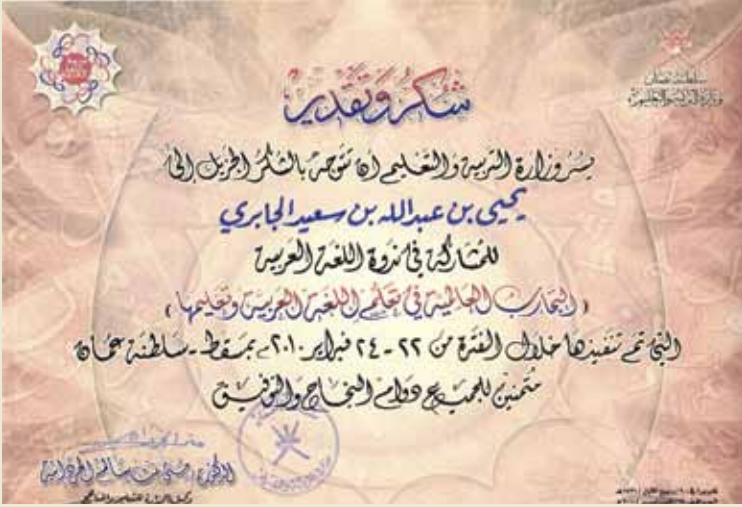 سلطنة عمان
وزارة التربية والتعليم
شكر وتقدير
يسر وزارة التربية والتعليم أن تتوجه بالشكر الجزيل إلى
يحيى بن عبدالله بن سعيد الجابري
للمشاركة في ندوة اللغة العربية
( التجارب العالمية في تعلم اللغة العربية وتعليمها )
التي تم تنفيذها خلال الفترة من ٢٢ - ٢٤ فبراير ٢٠١٠م بمسقط - سلطنة عمان
متمنين للجميع دوام النجاح والتوفيق